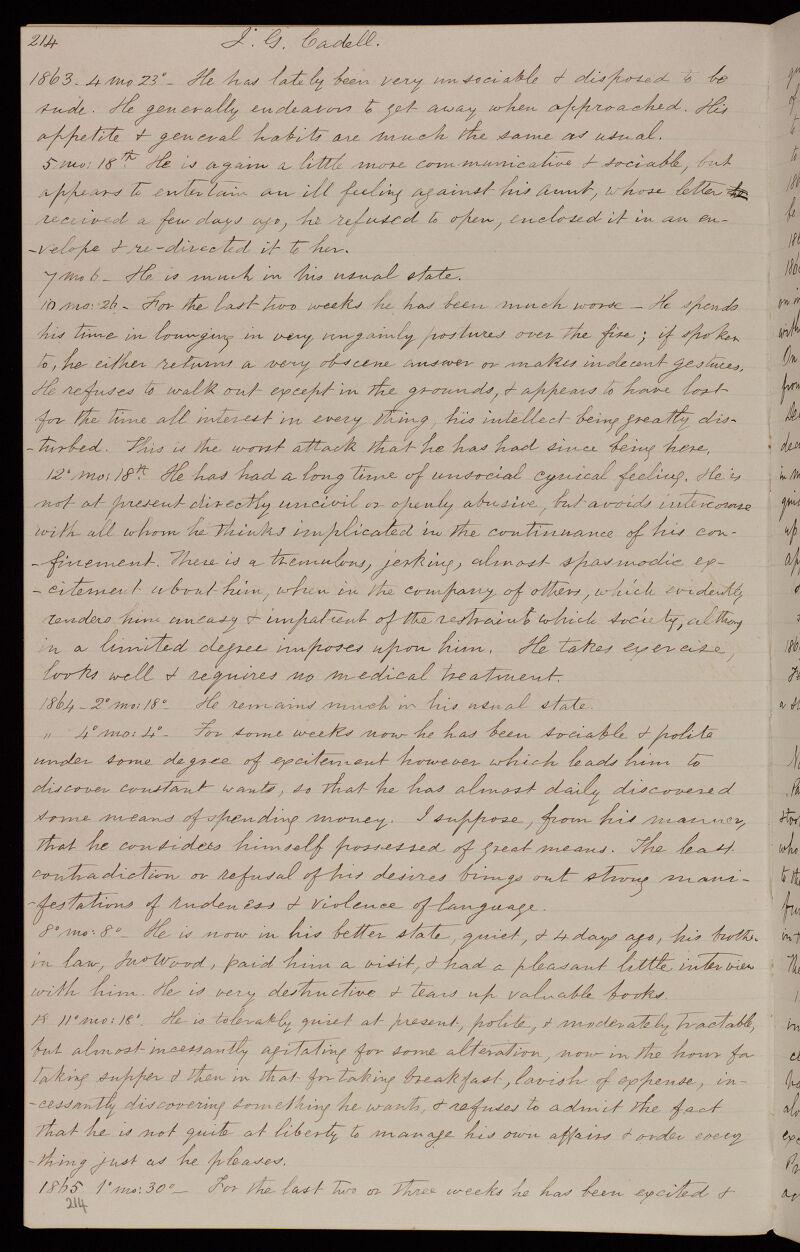 214 J. G. Cadell.
1863 - 4 mo 23° - He has lately been very unsociable & disposed to be
rude. He generally endeavors to get away when approached. His
appetite & general habits are much the same as usual.
5 mo: 18th He is again a little more communicative & sociable, but
appears to entertain an ill feeling against his Aunt, whose letter
received a few days ago, he refused to open, enclosed it in an en-
-velope & re-directed it to her.
7 mo 6 - He is much in his usual state.
10 mo: 26 - For the last two weeks he has been much worse - He spends
his time in lounging in very ungainly postures over the fire; if spoken
to, he either returns a very obscene answer or makes indecent gestures.
He refuses to walk out except in the grounds, & appears to have lost
for the time all interest in every thing, his intellect being greatly dis-
-turbed. This is the worst attack that he has had since being here.
12° mo: 18th He has had a long time of unsocial cynical feeling. He is
not at present directly uncivil or openly abusive, but avoids intercourse
with all whom he thinks implicated in the continuance of his con-
-finement. There is a tremulous, jerking, almost spasmodic ex-
-citement about him, when in the company of others, which evidently
renders him uneasy & impatient of the restraint which society, althoug
in a limited degree imposes upon him. He takes exercise,
looks well & requires no medical treatment.
1864 - 2° mo: 18° He remains much in his usual state.
" 4° mo: 4° - For some weeks now he has been sociable & polite
under some degree of excitement however which leads him to
discover constant wants, so that he has almost daily discovered
some means of spending money. I suppose, from his manner,
that he considers himself possessed of great means. The least
contradiction or refusal of his desires brings out strong mani-
-festations of rudeness & violence of language.
8° mo: 8° - He is now in his better state, quiet, & 4 days ago, his brother
in law, Jno Wood, paid him a visit, & had a pleasant little interview
with him. He is very destructive & tears up valuable books.
11° mo: 18°. He is tolerably quiet at present, polite, & moderately tractable,
but almost incessantly agitating for some alteration, now in the hour for
taking supper & then in that for taking breakfast, lavish of expense, in-
-cessantly discovering something he wants, & refuses to admit the fact
that he is not quite at liberty to manage his own affairs & order every
-thing just as he pleases.
1865 1° mo: 30° - For the last two or three weeks he has been excited &
214